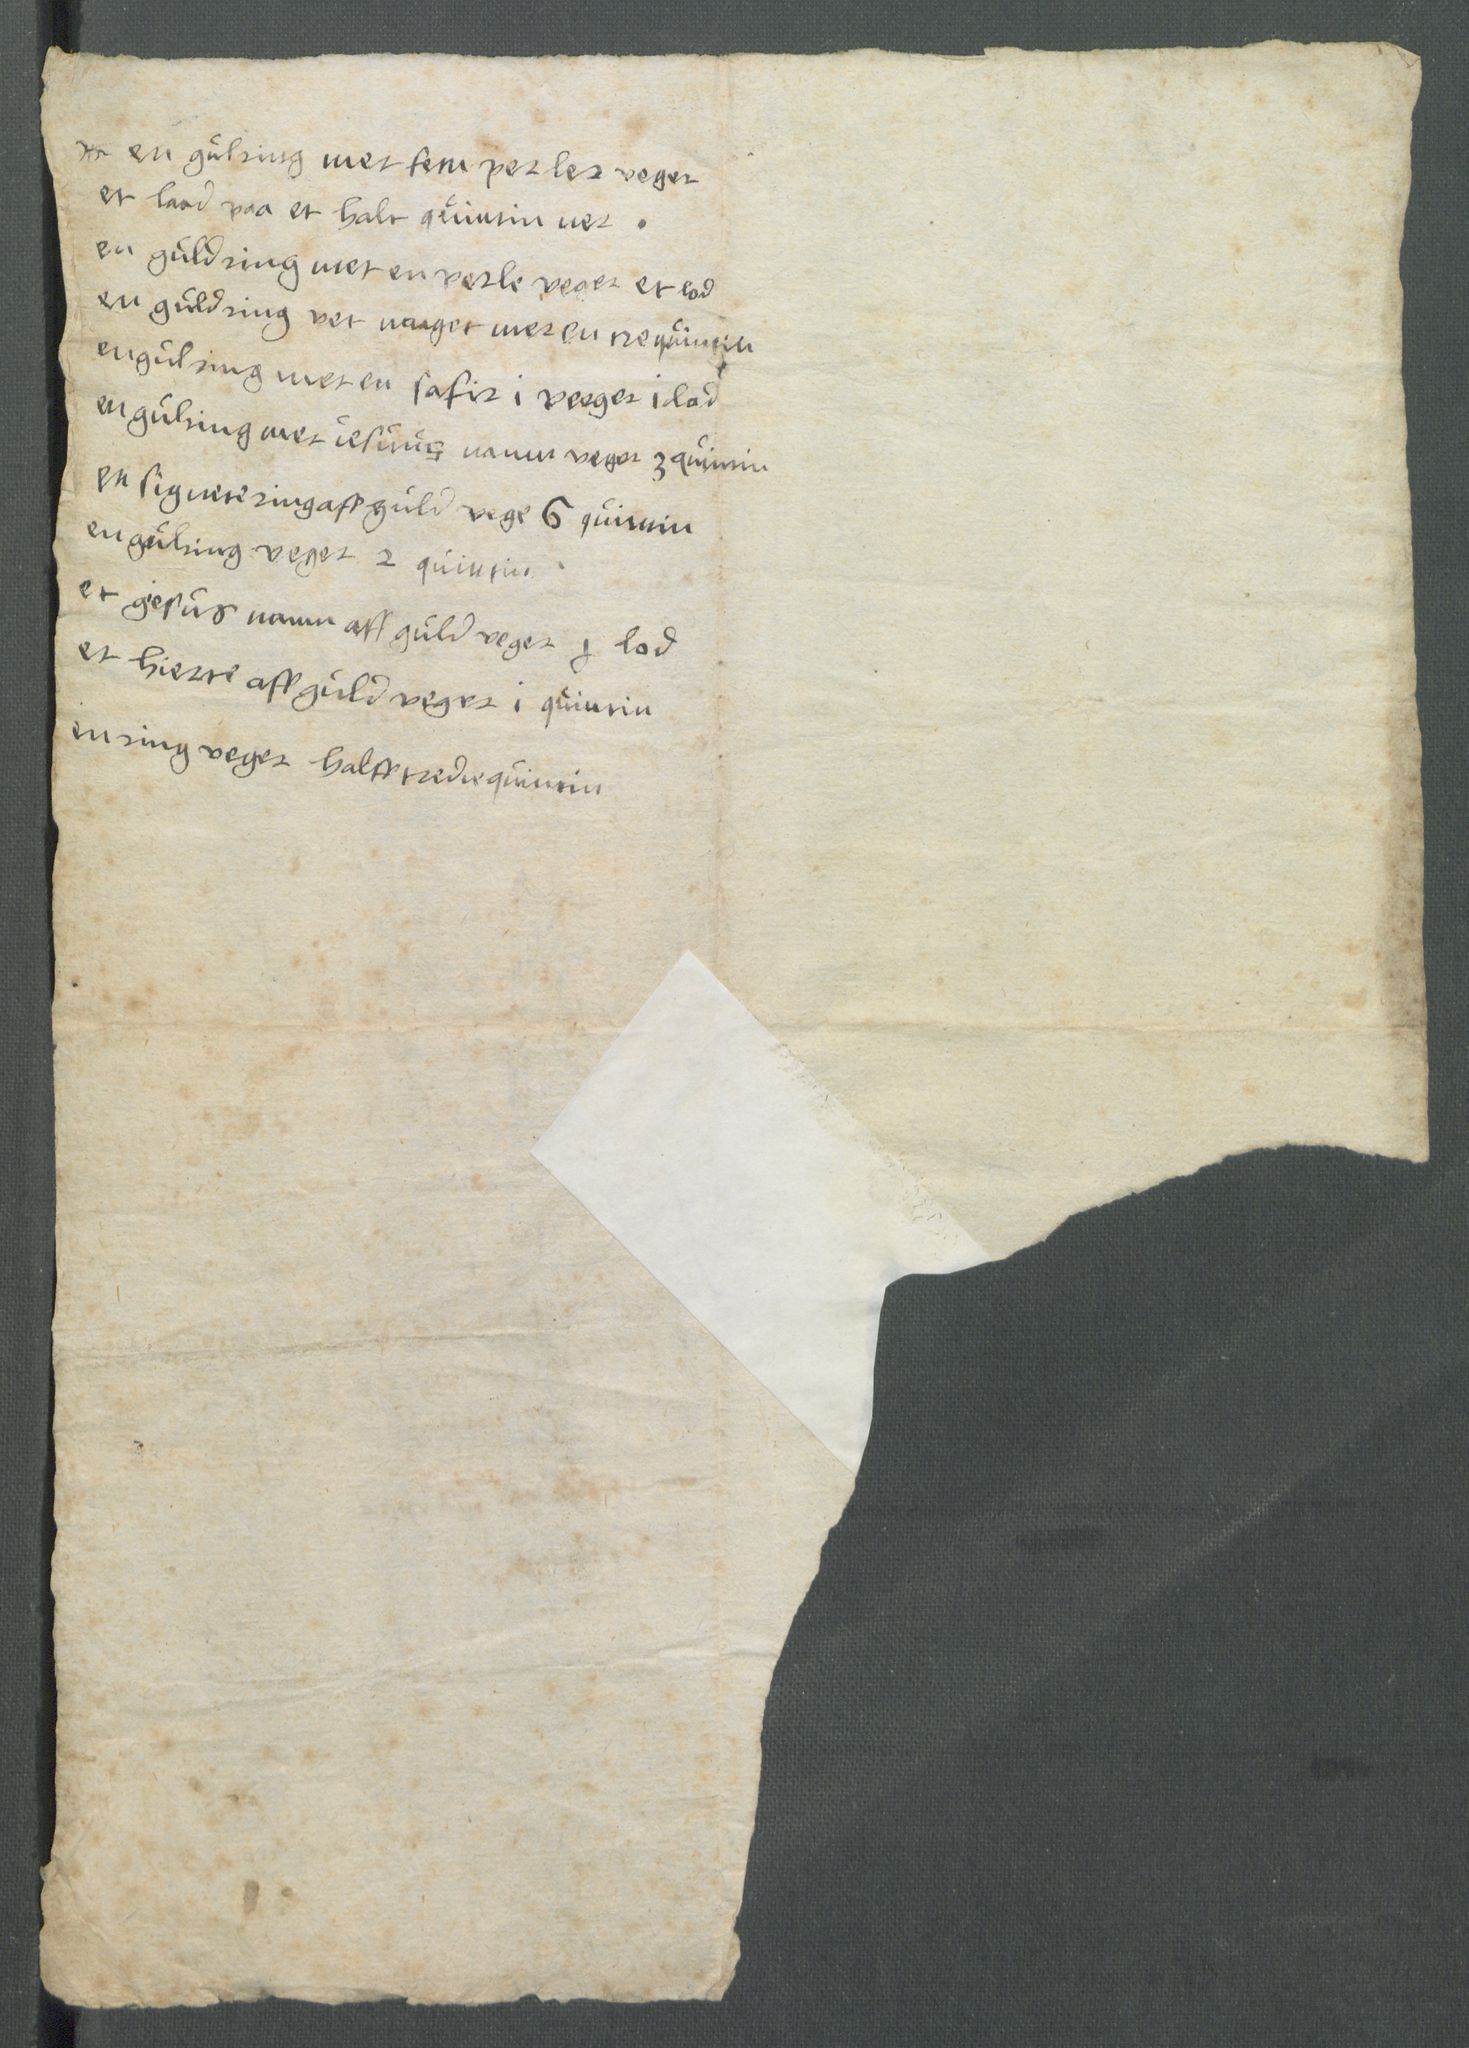 en gulring met fem perler veger
et laad paa et halt quintin ner .
en guldring met en perle veger et lod
en guldring vet naaget mer en tre quintin
en gulring met en safir i veeger i lod
en gulring met iesuus nanm veger 3 quintin
en signeteringaff guld vege 6 quintin
en gulring veger 2 quintin .
et giesus namn aff guld veger lod
et hierte aff guld veger i quintin
en ring veger halff tredie quintin